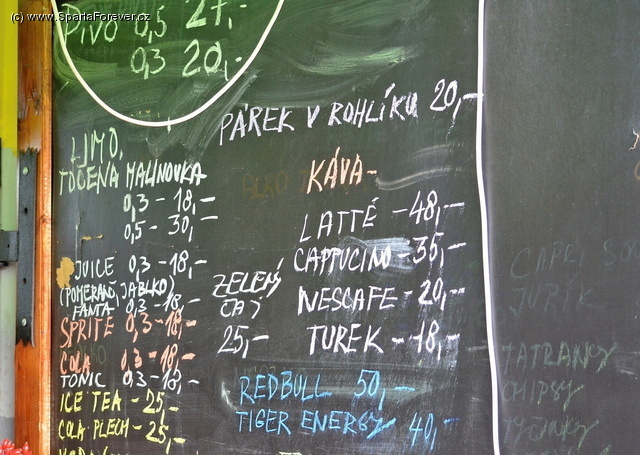 (c) www.SpartaForever.cz
PIVO 0,5 27,-
0,3 20,-
PÁREK V ROHLÍKU 20,-
LIMO.
TOČENÁ MALINOVKA
0,3 - 18,-
0,5 - 30,-
JUICE 0,3 - 18,-
(POMERANČ, JABLKO)
FANTA 0,3 - 18,-
SPRITE 0,3 - 18,-
COLA 0,3 - 18,-
TONIC 0,3 - 18,-
ICE TEA - 25,-
COLA PLECH - 25,-
ZELENÝ
ČAJ
25,-
KÁVA -
LATTÉ - 48,-
CAPPUCINO - 35,-
NESCAFE - 20,-
TUREK - 18,-
REDBULL 50,-
TIGER ENERGY 40,-
TATRANKY
CHIPSY